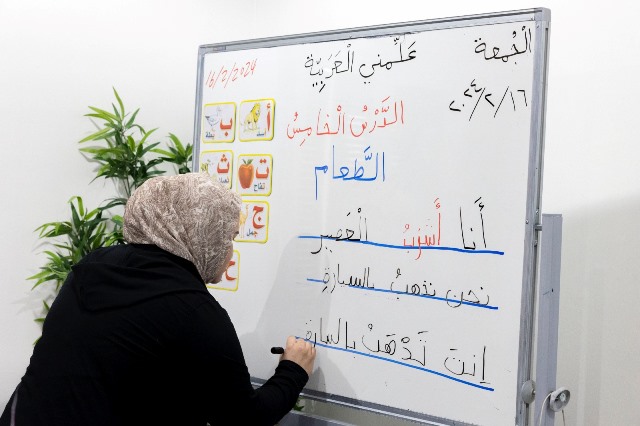 الْجُمعة
١٦/٢/٢٠٢٤
عَلِّمني الْعَرَبِيّة
16/2/2024
الدَّرْسُ الْخَامِسُ
الطَّعام
أَنا أَشْرَبُ الْعَصير
نحن نذهبُ بالسيارةِ
اِنتَ تَذْهَبُ بالسارة
أ
أسد
ب
بطة
ت
تفاح
ث
ج
جمل
ح